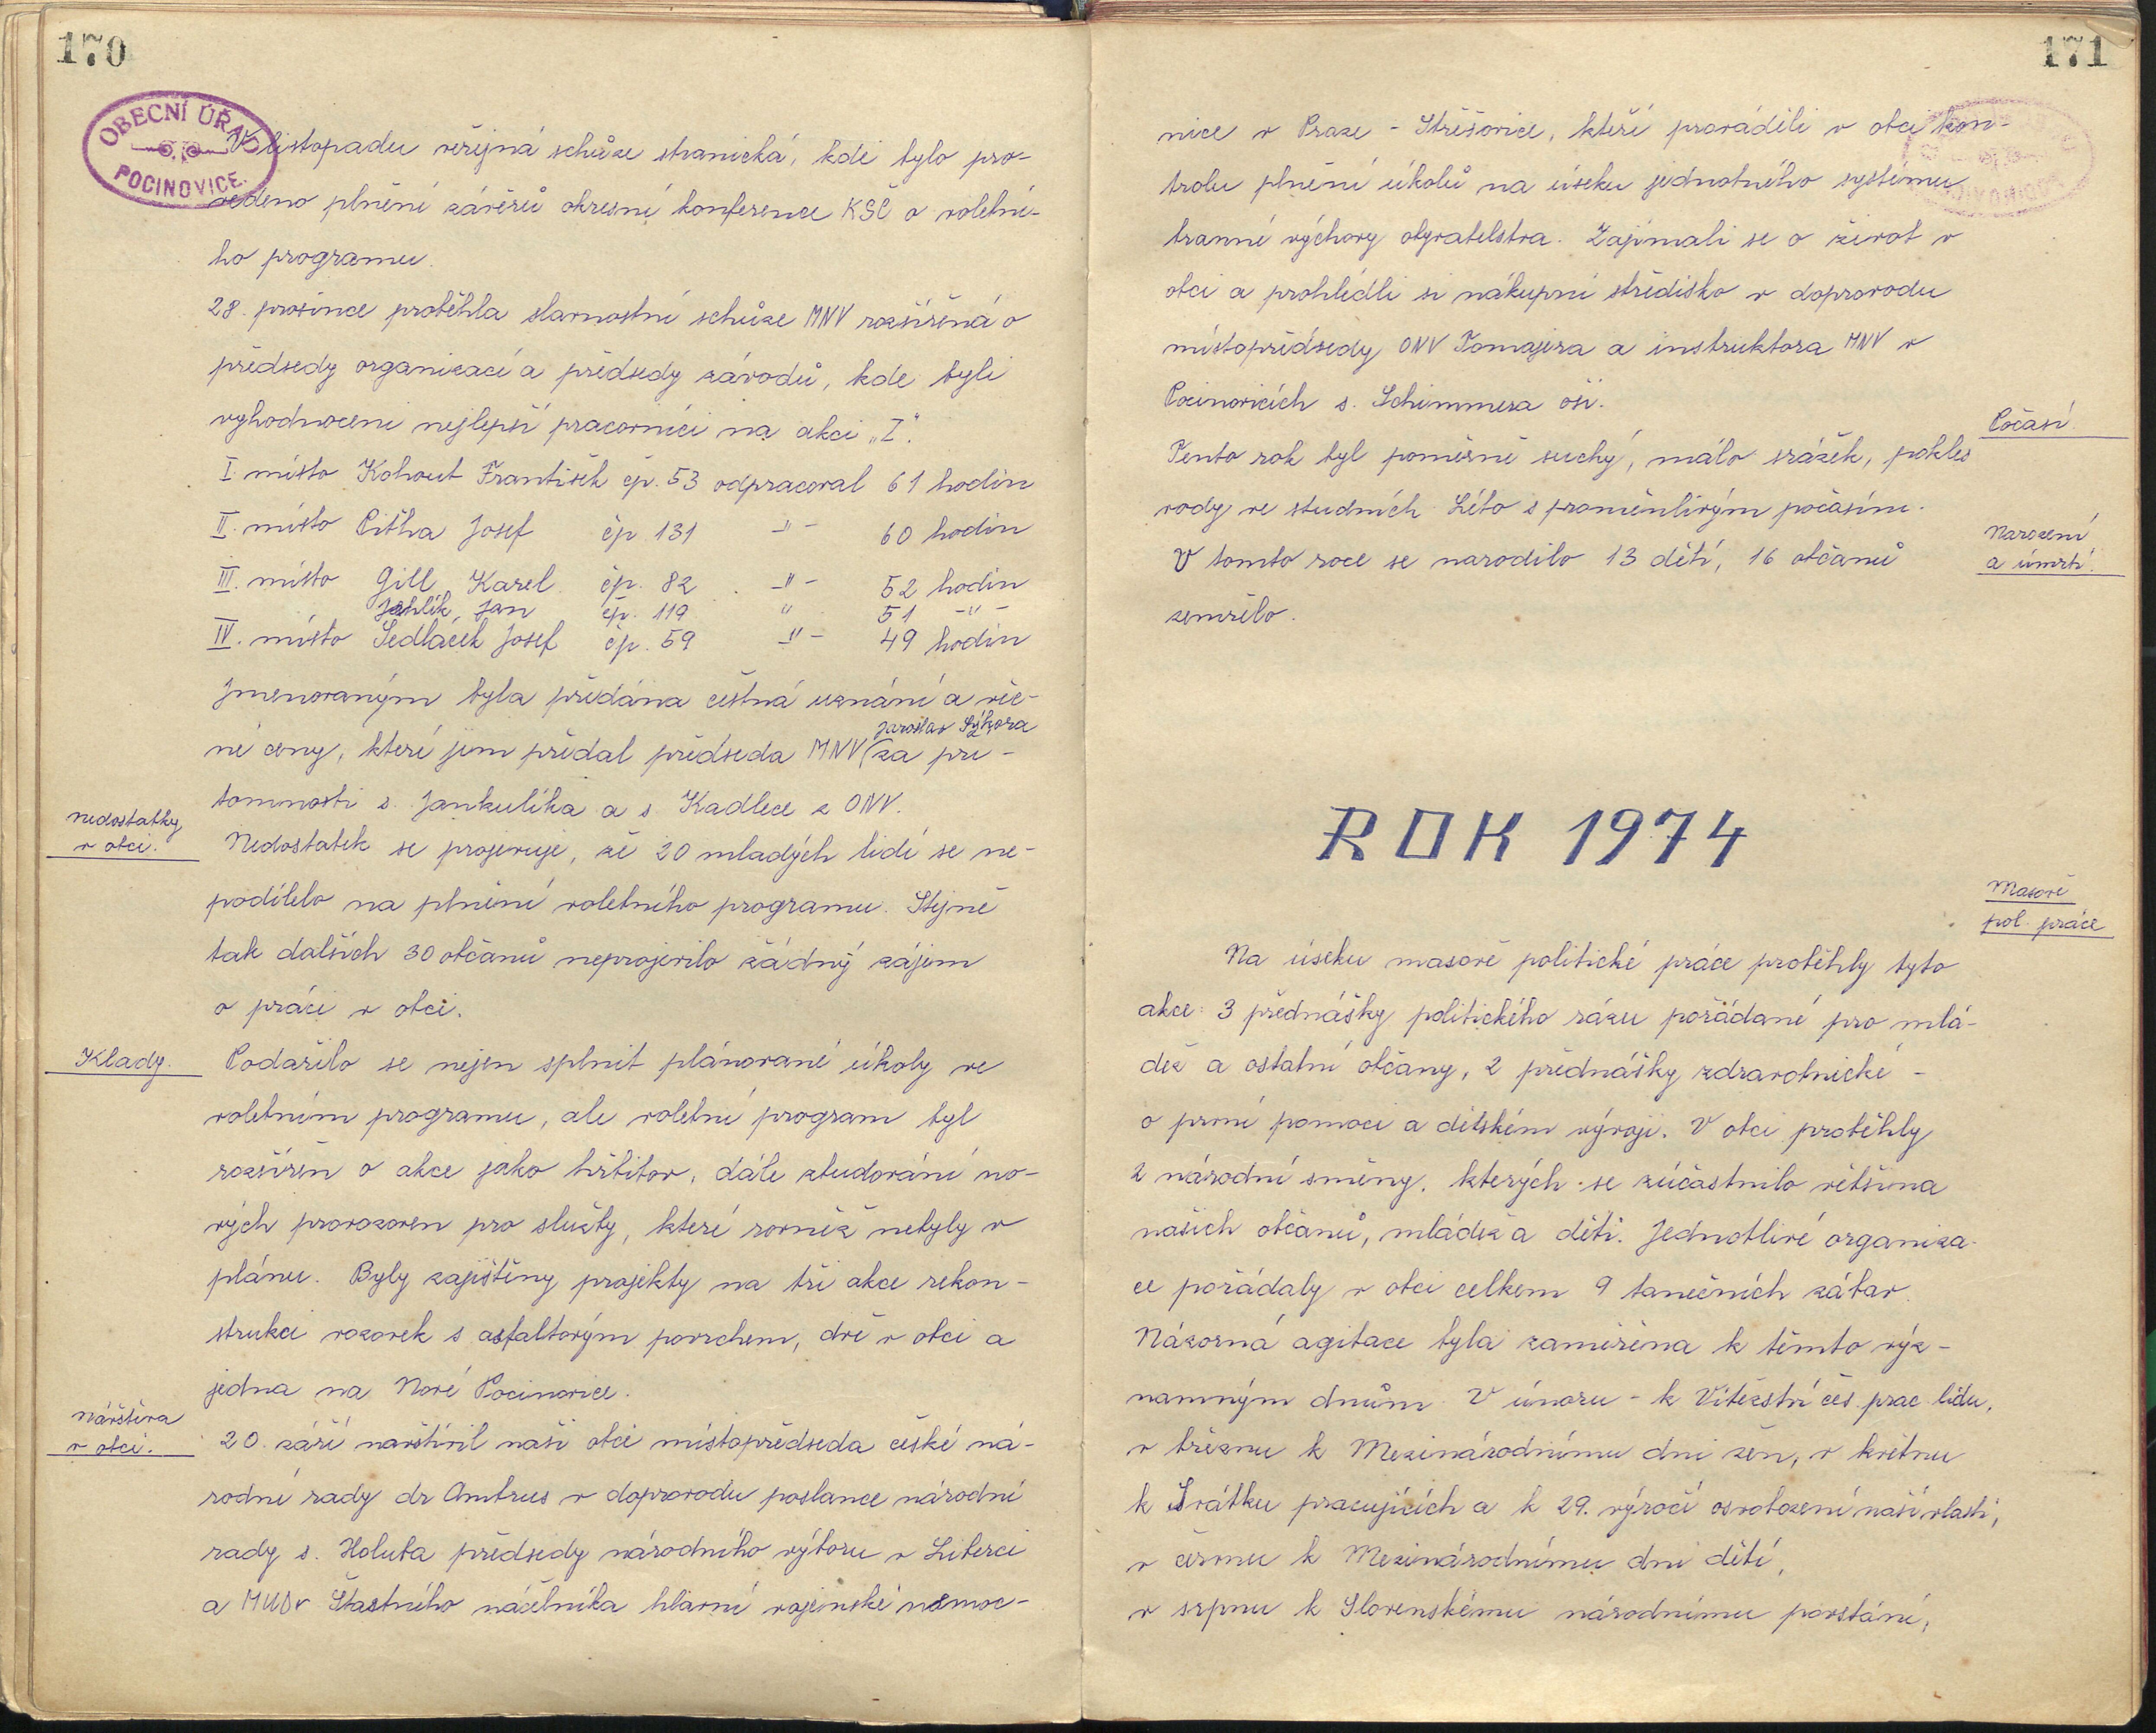 170
OBECNÍ ÚŘAD
POCINOVICE
V listopadu veřejná schůze stranická, kde bylo pro-
vedeno plnění závěrů okresní konference KSČ a volební-
ho programu.
28. prosince proběhla slavnostní schůze MNV rozšířená o
předsedy organizací a předsedy závodů, kde byli
vyhodnoceni nejlepší pracovníci na akci „Z".
I. místo Kohout František čp. 53 odpracoval 61 hodin
II. místo Pitha Josef čp. 131 -"- 60 hodin
III. místo Gill Karel čp. 82 -"- 52 hodin
Jehlík Jan čp. 119 " 51 -"-
IV. místo Sedláček Josef čp. 59 -"- 49 hodin
Jmenovaným byla předána čestná uznání a věc-
Jaroslav Sýkora
né ceny, které jim předal předseda MNV (za pří-
tomnosti s. Jankulíka a s. Kadlece z ONV.
nedostatky
v obci.
Nedostatek se projevuje, že 20 mladých lidí se ne-
podílelo na plnění volebního programu. Stejně
tak dalších 30 občanů neprojevilo žádný zájem
o práci v obci.
Klady.
Podařilo se nejen splnit plánované úkoly ve
volebním programu, ale volební program byl
rozšířen o akce jako hřbitov, dále zbudování no-
vých provozoven pro služby, které rovněž nebyly v
plánu. Byly zajištěny projekty na tři akce rekon-
strukcí vozovek s asfaltovým povrchem, dvě v obci a
jedna na Nové Pocinovice.
návštěva
v obci.
20. září navštívil naši obec místopředseda české ná-
rodní rady dr Ambrus v doprovodu poslance národní
rady s. Holuba předsedy národního výboru v Liberci
a MUDr Šťastného náčelníka hlavní vojenské nemoc-
171
nice v Praze - Střešovice, kteří prováděli v obci kon-
trolu plnění úkolů na úseku jednotného systému
branné výchovy obyvatelstva. Zajímali se o život v
obci a prohlédli si nákupní středisko v doprovodu
místopředsedy ONV Tomajera a instruktora MNV v
Pocinovicích s. Schimmera oší.
Počasí.
Tento rok byl poměrně suchý, málo srážek, pokles
vody ve studních. Léto s proměnlivým počasím.
Narození
a úmrtí.
V tomto roce se narodilo 13 dětí, 16 občanů
zemřelo.
ROK 1974
Masově
pol. práce
Na úseku masově politické práce proběhly tyto
akce: 3 přednášky politického rázu pořádané pro mlá-
dež a ostatní občany, 2 přednášky zdravotnické -
o první pomoci a dětském vývoji. V obci proběhly
2 národní směny, kterých se zúčastnilo většina
našich občanů, mládež a děti. Jednotlivé organiza-
ce pořádaly v obci celkem 9 tanečních zábav.
Názorná agitace byla zaměřena k těmto výz-
namným dnům. V únoru - k Vítězství čes. prac. lidu,
v březnu k Mezinárodnímu dni žen, v květnu
k Svátku pracujících a k 29. výročí osvobození naší vlasti,
v červnu k Mezinárodnímu dni dětí,
v srpnu k Slovenskému národnímu povstání,